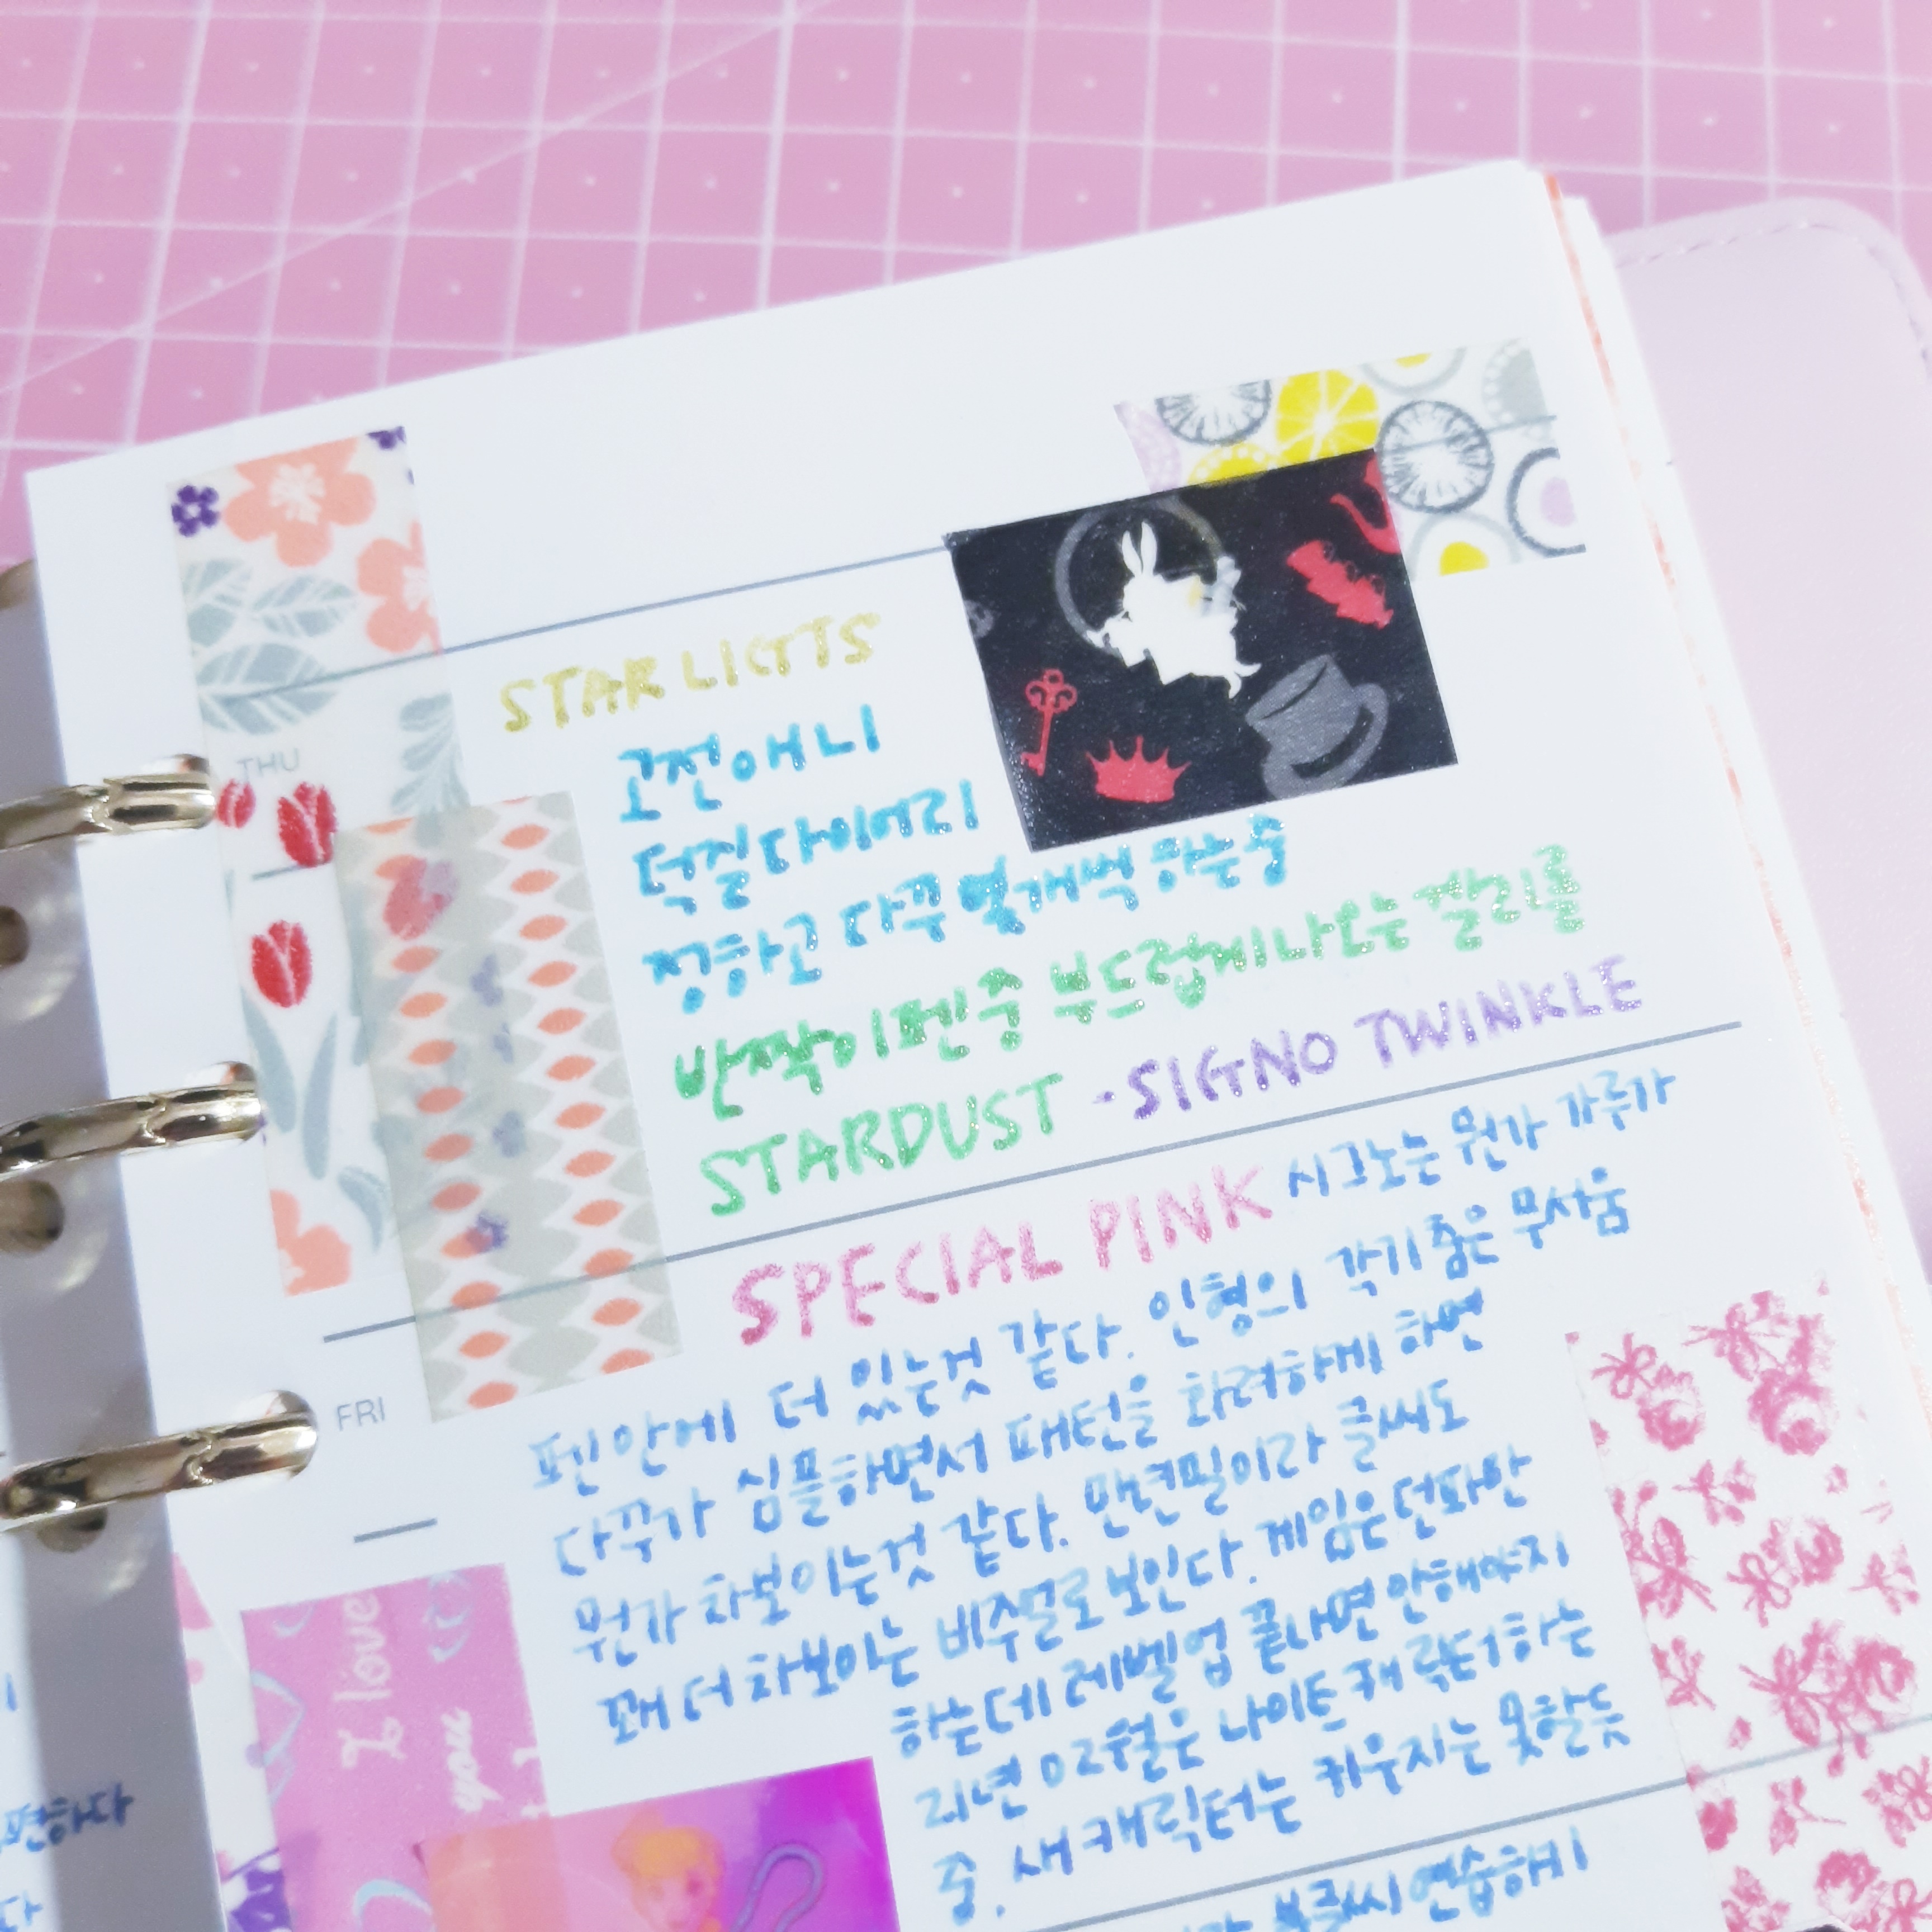 THU
STAR LIGTTS
고전애니
덕질다이어리
정하고 다꾸 열개씩 하는중
반짝이펜중 부드럽게나오는 칼리를
STARDUST ·SIGNO TWINKLE
FRI
SPECIAL PINK 시그노는 뭔가 가루가
펜안에 더 있는것 같다. 인형의 각기춤은 무서움
다꾸가 심플하면서 패턴을 화려하게 하면
뭔가 차보이는것 같다. 만년필이라 글씨도
꽤 더 차보이는 비주얼로 보인다. 게임은 던파만
하는데 레벨업 끝나면 안해야지
21년 02월은 나이트 캐릭터하는
중. 새 캐릭터는 키우지는 못할듯
글씨연습해비
I love
you
편하다
다